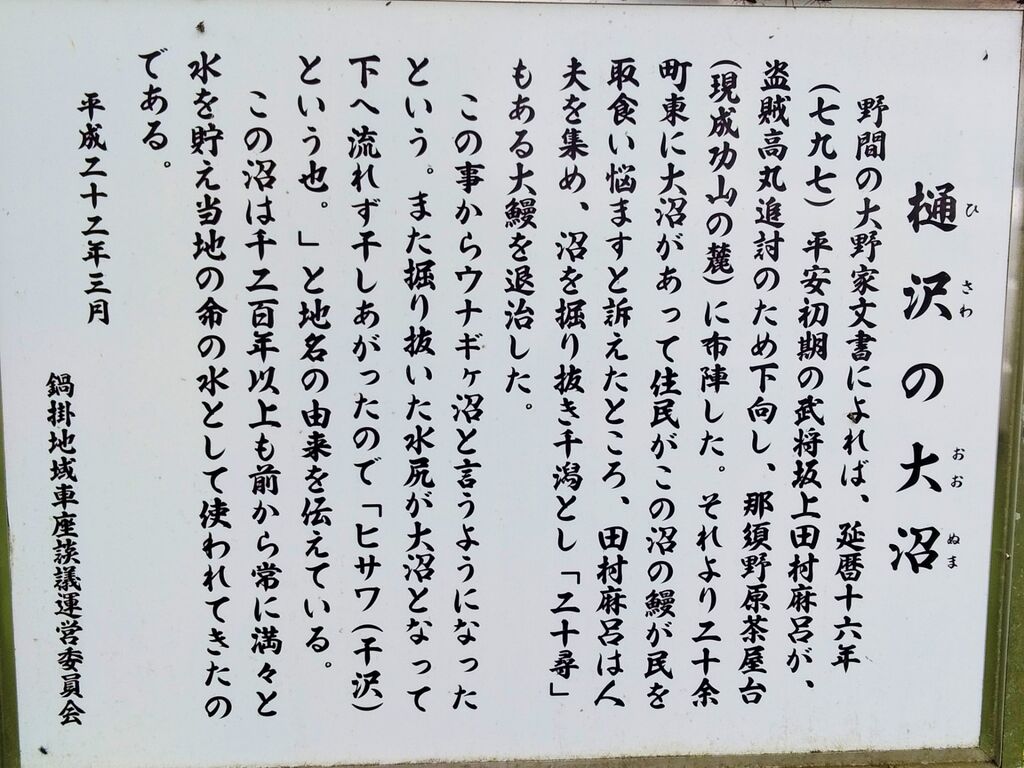 樋沢の大沼
ひさわ おおぬま
野間の大野家文書によれば、延暦十六年
(七九七)平安初期の武将坂上田村麻呂が、
盗賊高丸追討のため下向し、那須野原茶屋台
(現成功山の麓)に布陣した。それより二十余
町東に大沼があって住民がこの沼の鰻が民を
取食い悩ますと訴えたところ、田村麻呂は人
夫を集め、沼を掘り抜き干潟とし「二十尋」
もある大鰻を退治した。
この事からウナギヶ沼と言うようになった
という。また掘り抜いた水尻が大沼となって
下へ流れず干しあがったので「ヒサワ(干沢)
という也。」と地名の由来を伝えている。
この沼は千二百年以上も前から常に満々と
水を貯え当地の命の水として使われてきたの
である。
平成二十二年三月
鍋掛地域車座談議運営委員会